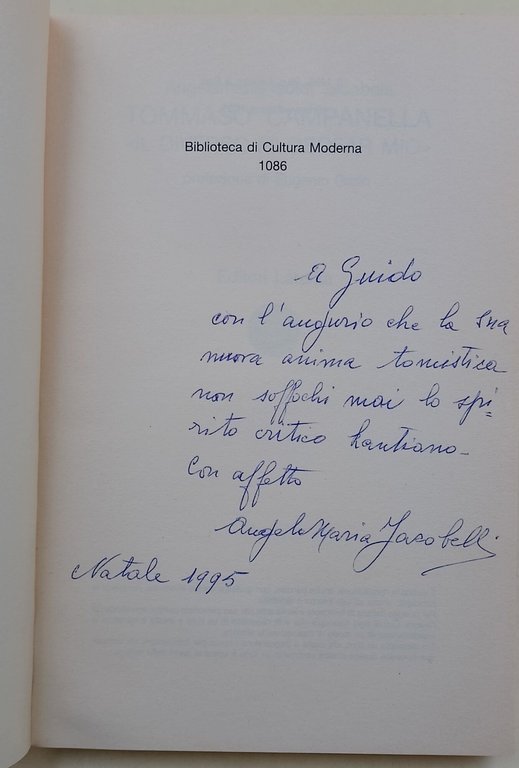 Biblioteca di Cultura Moderna
1086
A Guido
con l'augurio che la sua
nuova anima tomistica
non soffochi mai lo spi=
rito critico kantiano-
Con affetto
Angela Maria Jacobelli
Natale 1995
TOMMASO CAMPANELLA